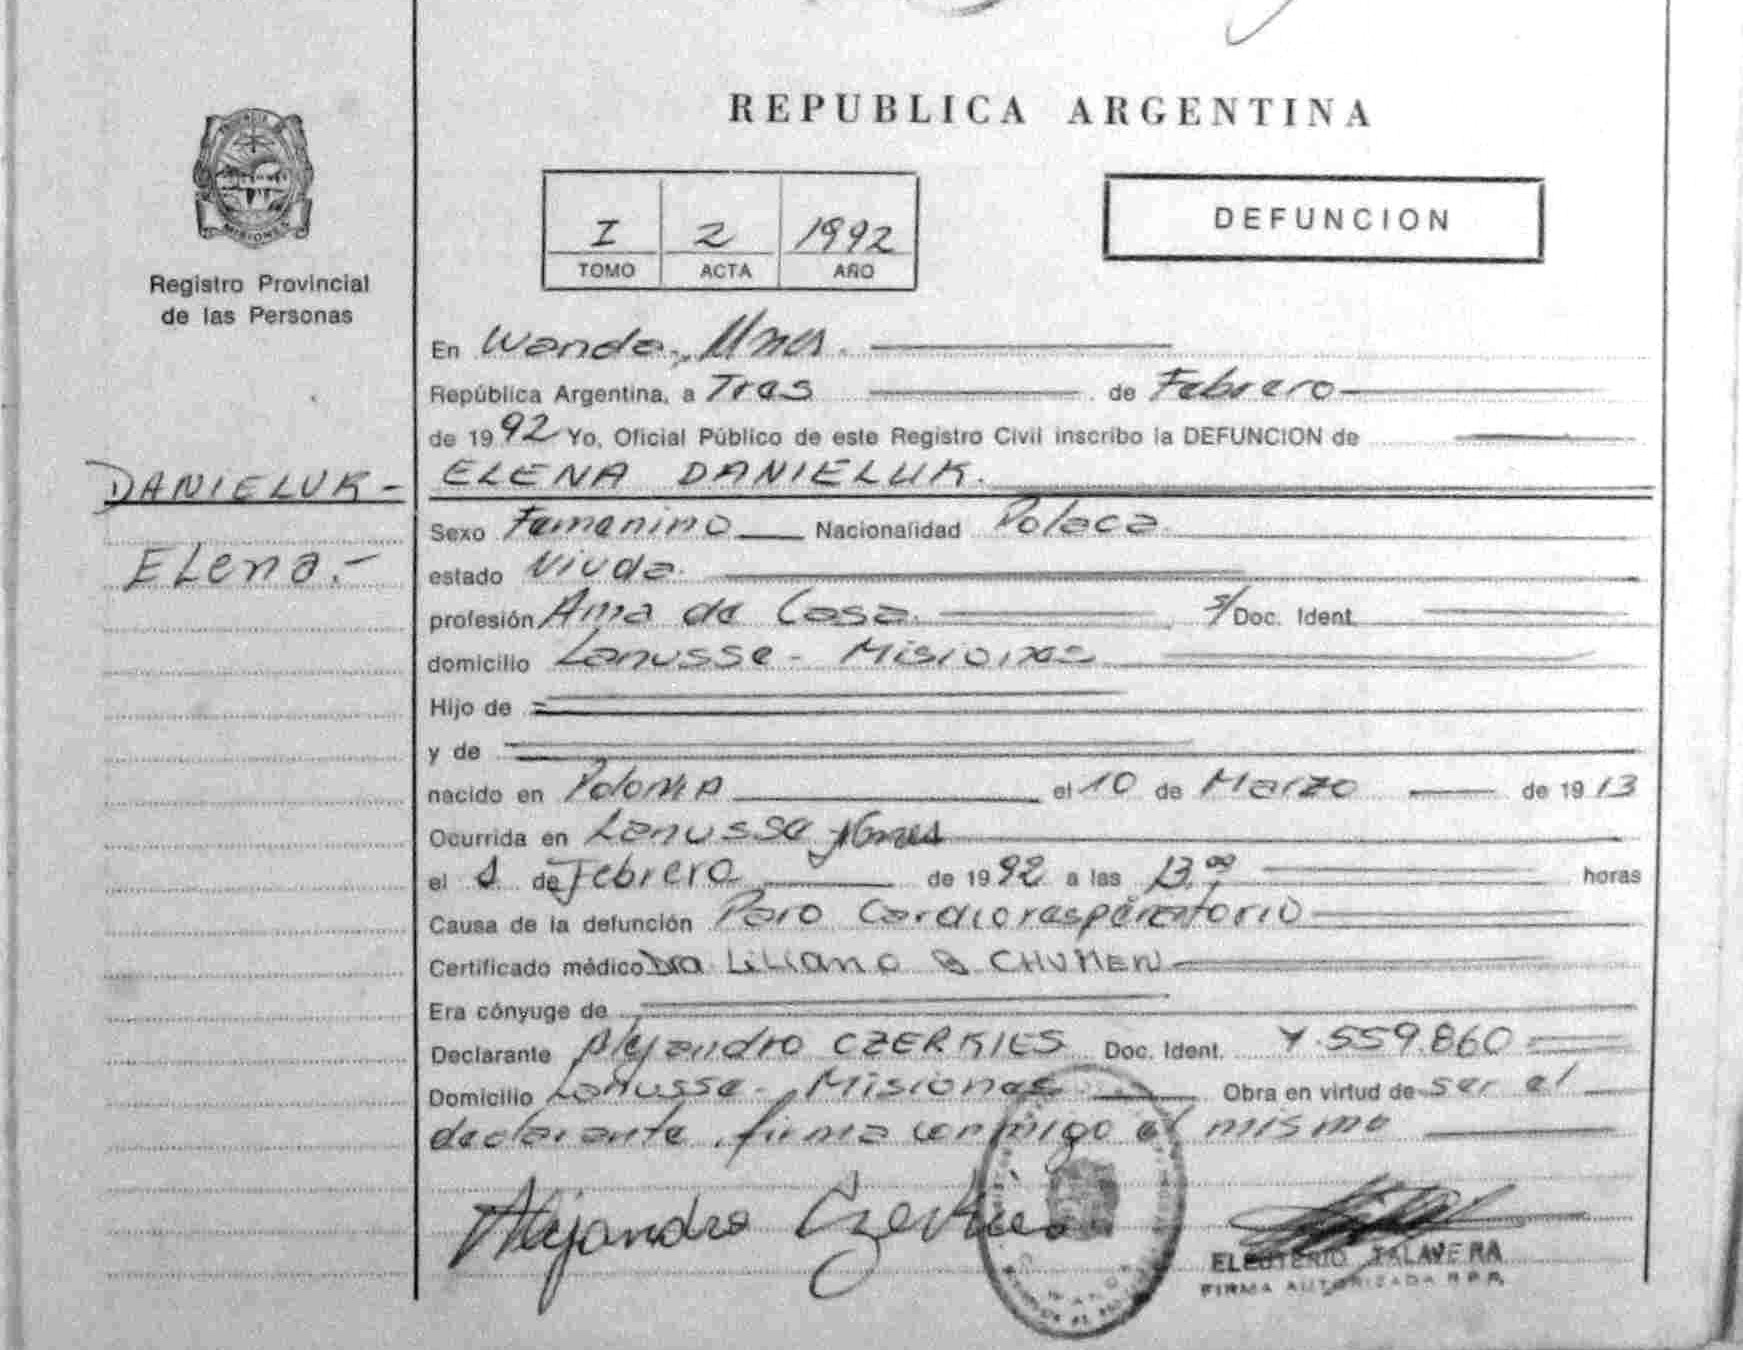 REPUBLICA ARGENTINA
MISIONES
Registro Provincial
de las Personas
I 2 1992
TOMO ACTA AÑO
DEFUNCION
DANIELUK -
Elena.-
En Wanda, Mnes.
República Argentina, a Tres de Febrero
de 1992 Yo, Oficial Público de este Registro Civil inscribo la DEFUNCION de
ELENA DANIELUK.
Sexo Femenino Nacionalidad Polaca
estado Viuda.
profesión Ama de Casa. s/Doc. Ident.
domicilio Lanusse - Misiones
Hijo de
y de
nacido en Polonia el 10 de Marzo de 1913
Ocurrida en Lanusse Mnes
el 1 de Febrero de 1992 a las 13,00 horas
Causa de la defunción Paro Cardiorespiratorio
Certificado médico Dra Liliana B CHUMEN
Era cónyuge de
Declarante Alejandro CZERKIES Doc. Ident. 7.559.860
Domicilio Lanusse - Misiones Obra en virtud de ser el
declarante, firma conmigo el mismo
Alejandro Czerkies
ELEUTERIO TALAVERA
FIRMA AUTORIZADA R.P.P.